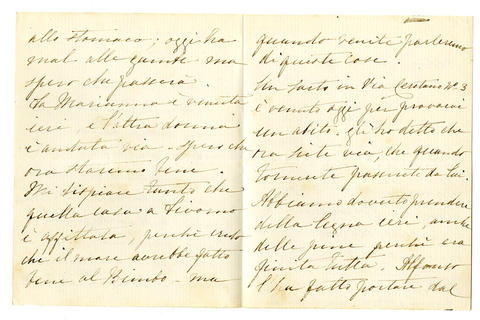 allo stomaco; oggi ha
mal alle gambe ma
spero che passerà.
La Marianna è venuta
ieri, e l'altra donna
è andata via. Spero che
ora staremo bene.
Mi dispiace tanto che
quella casa a Livorno
è affittata, perchè credo
che il mare avrebbe fatto
bene al Bimbo - ma
quando venite parleremo
di queste cose.
Un sarto in Via Cerretani No. 3
è venuto oggi per provarvi
un abito. gli ho detto che
ora siete via, che quando
tornate passerete da lui.
Abbiamo dovuto prendere
della legna ieri, anche
delle pine perchè era
finita tutta. Alfonso
l'ha fatto portare dal